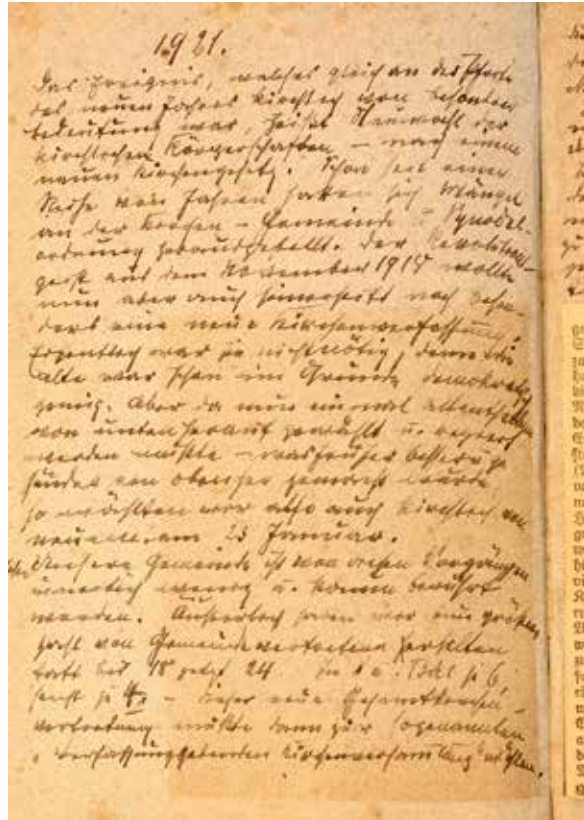 1921.
Das Ereignis, welches gleich an der Pforte
des neuen Jahres kirchlich von besonderer
Bedeutung war, heißt Neuwahl der
kirchlichen Körperschaften – nach einem
neuen Kirchengesetz. Schon seit einer
Reihe von Jahren hatten sich Mängel
an der Kirchen-Gemeinde u. Synodal-
ordnung herausgestellt. Der Revolutions-
geist aus dem November 1918 wollte
nun aber auch seinerseits noch beson-
ders eine neue Kirchenverfassung.
Eigentlich war sie nicht nötig, denn die
alte war schon im Grunde demokratisch
genug. Aber da nun einmal allenthalben
von unten herauf gewählt u. regiert
werden mußte – was früher besser u.
von oben her gemacht wurde
so wählten wir also auch kirchlich von
neuem am 23 Januar.
Unsere Gemeinde ist von diesen Vorgängen
innerlich wenig u. kaum berührt
worden. Äußerlich haben wir eine größere
Zahl von Gemeindevertretern erhalten
statt bis 18 jetzt 24. je 6
sonst je 4. – Dieser neue Gesamtkirchen-
vertretung mußte dann zur sogenannten
"verfassunggebenden Kirchenversammlung" wählen.